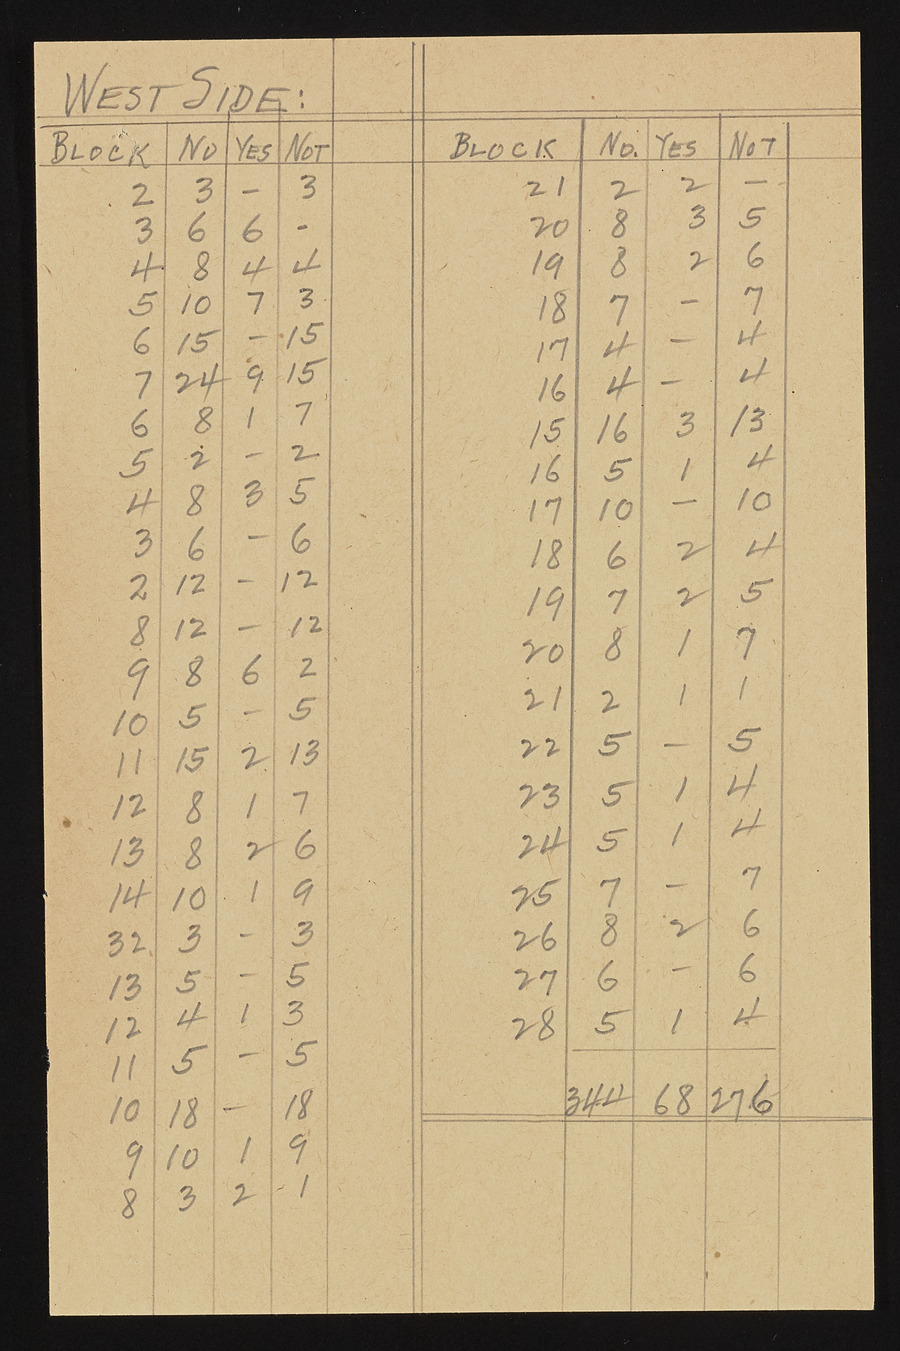 WEST SIDE:
BLOCK NO YES NOT
2 3 - 3
3 6 6 -
4 8 4 4
5 10 7 3
6 15 - 15
7 24 9 15
6 8 1 7
5 2 - 2
4 8 3 5
3 6 - 6
2 12 - 12
8 12 - 12
9 8 6 2
10 5 - 5
11 15 2 13
12 8 1 7
13 8 2 6
14 10 1 9
32 3 - 3
13 5 - 5
12 4 1 3
11 5 - 5
10 18 - 18
9 10 1 9
8 3 2 1
BLOCK NO. YES NOT
21 2 2 -
20 8 3 5
19 8 2 6
18 7 - 7
17 4 - 4
16 4 - 4
15 16 3 13
16 5 1 4
17 10 - 10
18 6 2 4
19 7 2 5
20 8 1 7
21 2 1 1
22 5 - 5
23 5 1 4
24 5 1 4
25 7 - 7
26 8 2 6
27 6 - 6
28 5 1 4
344 68 276